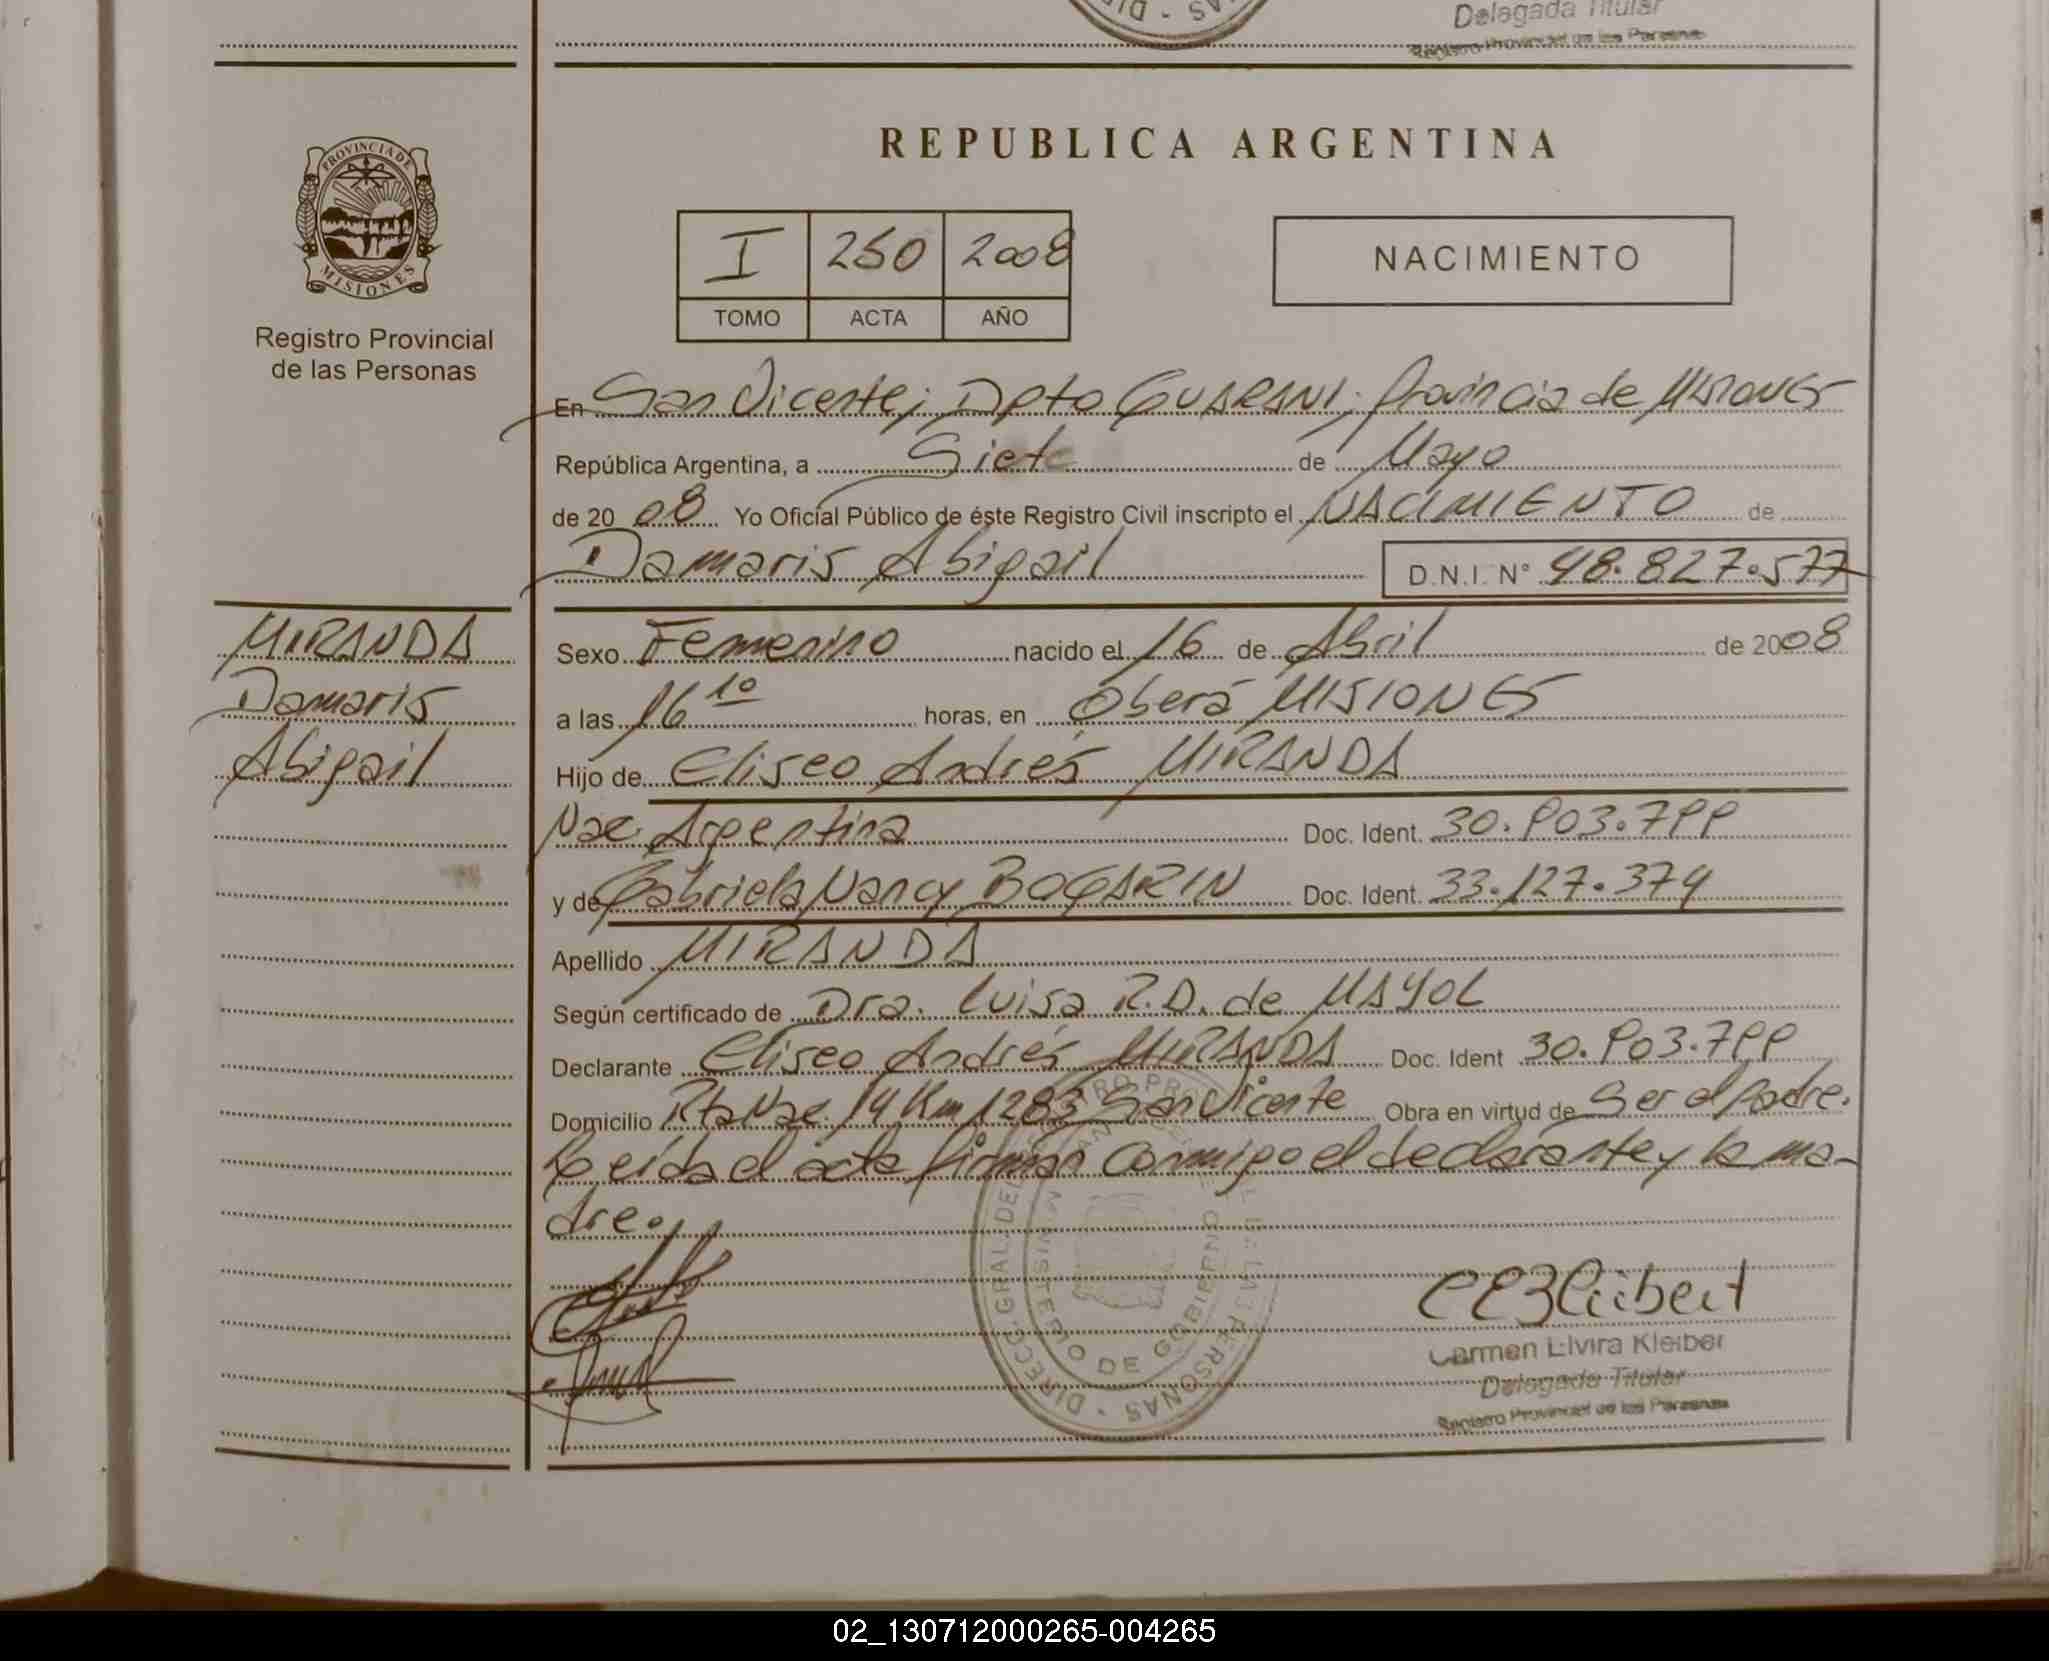 Delegada Titular
Registro Provincial de las Personas
PROVINCIA DE
MISIONES
Registro Provincial
de las Personas
REPUBLICA ARGENTINA
I 250 2008
TOMO ACTA AÑO
NACIMIENTO
En San Vicente; Dpto GUARANI; Provincia de MISIONES
República Argentina, a Siete de Mayo
de 2008 Yo Oficial Público de éste Registro Civil inscripto el NACIMIENTO de
Damaris Abigail D.N.I. N° 48.827.577
MIRANDA
Damaris
Abigail
Sexo Femenino nacido el 16 de Abril de 2008
a las 16 10 horas, en Oberá MISIONES
Hijo de Eliseo Andrés MIRANDA
Nac. Argentina Doc. Ident. 30.903.799
y de Gabriela Nancy BOGARIN Doc. Ident. 33.127.374
Apellido MIRANDA
Según certificado de Dra. Luisa R.D. de MAYOL
Declarante Eliseo Andrés MIRANDA Doc. Ident 30.903.799
Domicilio Rta Nac. 14 Km 1283 San Vicente Obra en virtud de Ser el Padre.
Leída el acta firman conmigo el declarante y la ma-
dre.
DIRECC. GRAL. DEL REGISTRO PROV. DE LAS PERSONAS
MINISTERIO DE GOBIERNO
Carmen Elvira Kleiber
Delegada Titular
Registro Provincial de las Personas
02_130712000265-004265